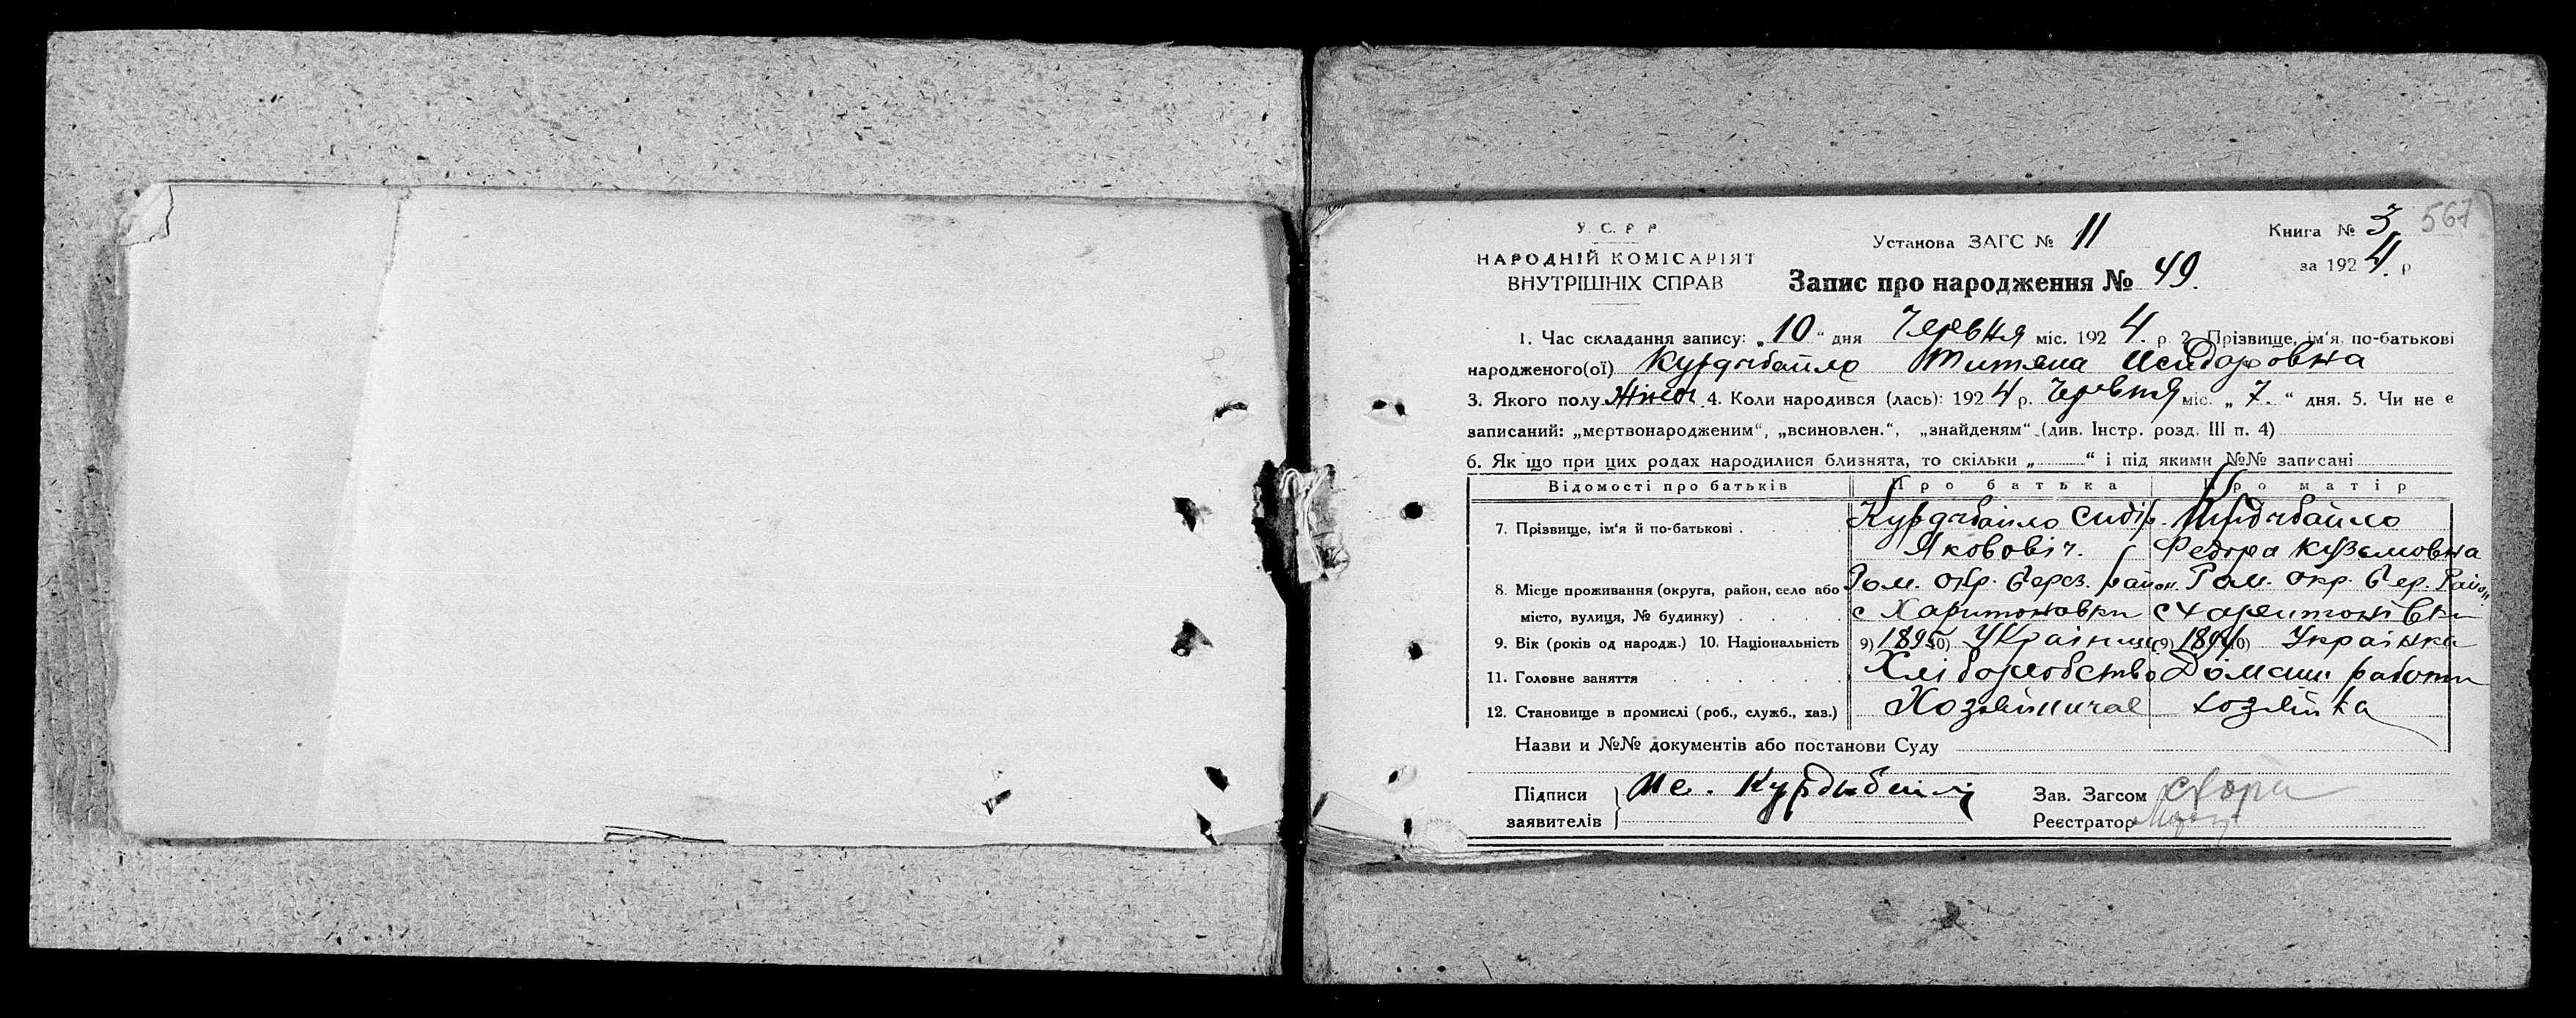 У. С. Р Р
НАРОДНІЙ КОМІСАРІЯТ
ВНУТРІШНІХ СПРАВ
Установа ЗАГС № 11
Книга № 3. 567
за 1924. р
Запис про народження № 49.
1. Час складання запису: „10“ дня Червня міс. 1924. р. 2. Прізвище, ім'я, по-батькові
народженого(ої) Курдибайло Титяна Исидоровна
3. Якого полу Жіноч. 4. Коли народився (лась): 1924 р. Червня міс. „7.“ дня. 5. Чи не є
записаний: „мертвонародженим“, „всиновлен.“, „знайденям“ (див. Інстр. розд. III п. 4)
6. Як що при цих родах народилися близнята, то скільки „ “ і під якими №№ записані
Відомості про батьків Про батька Про матір
7. Прізвище, ім'я й по-батькові . Курдибайло Сидір Курдибайло
Яковович. Федора Кузьмовна
8. Місце проживання (округа, район, село або Ром. окр. Берез. район. Ром. окр. Бер. Район.
місто, вулиця, № будинку) с Харитоновки с Харитонівки
9. Вік (років од народж.) 10. Національність 9) 1895 10) Українець 9) 1894 10) Українка
11. Головне заняття Хліборобство Домашн. работи
12. Становище в промислі (роб., служб., хаз.) Хозяйничає хозяйка
Назви и №№ документів або постанови Суду
Підписи Ис. Курдибайло
заявителів
Зав. Загсом
Реєстратор